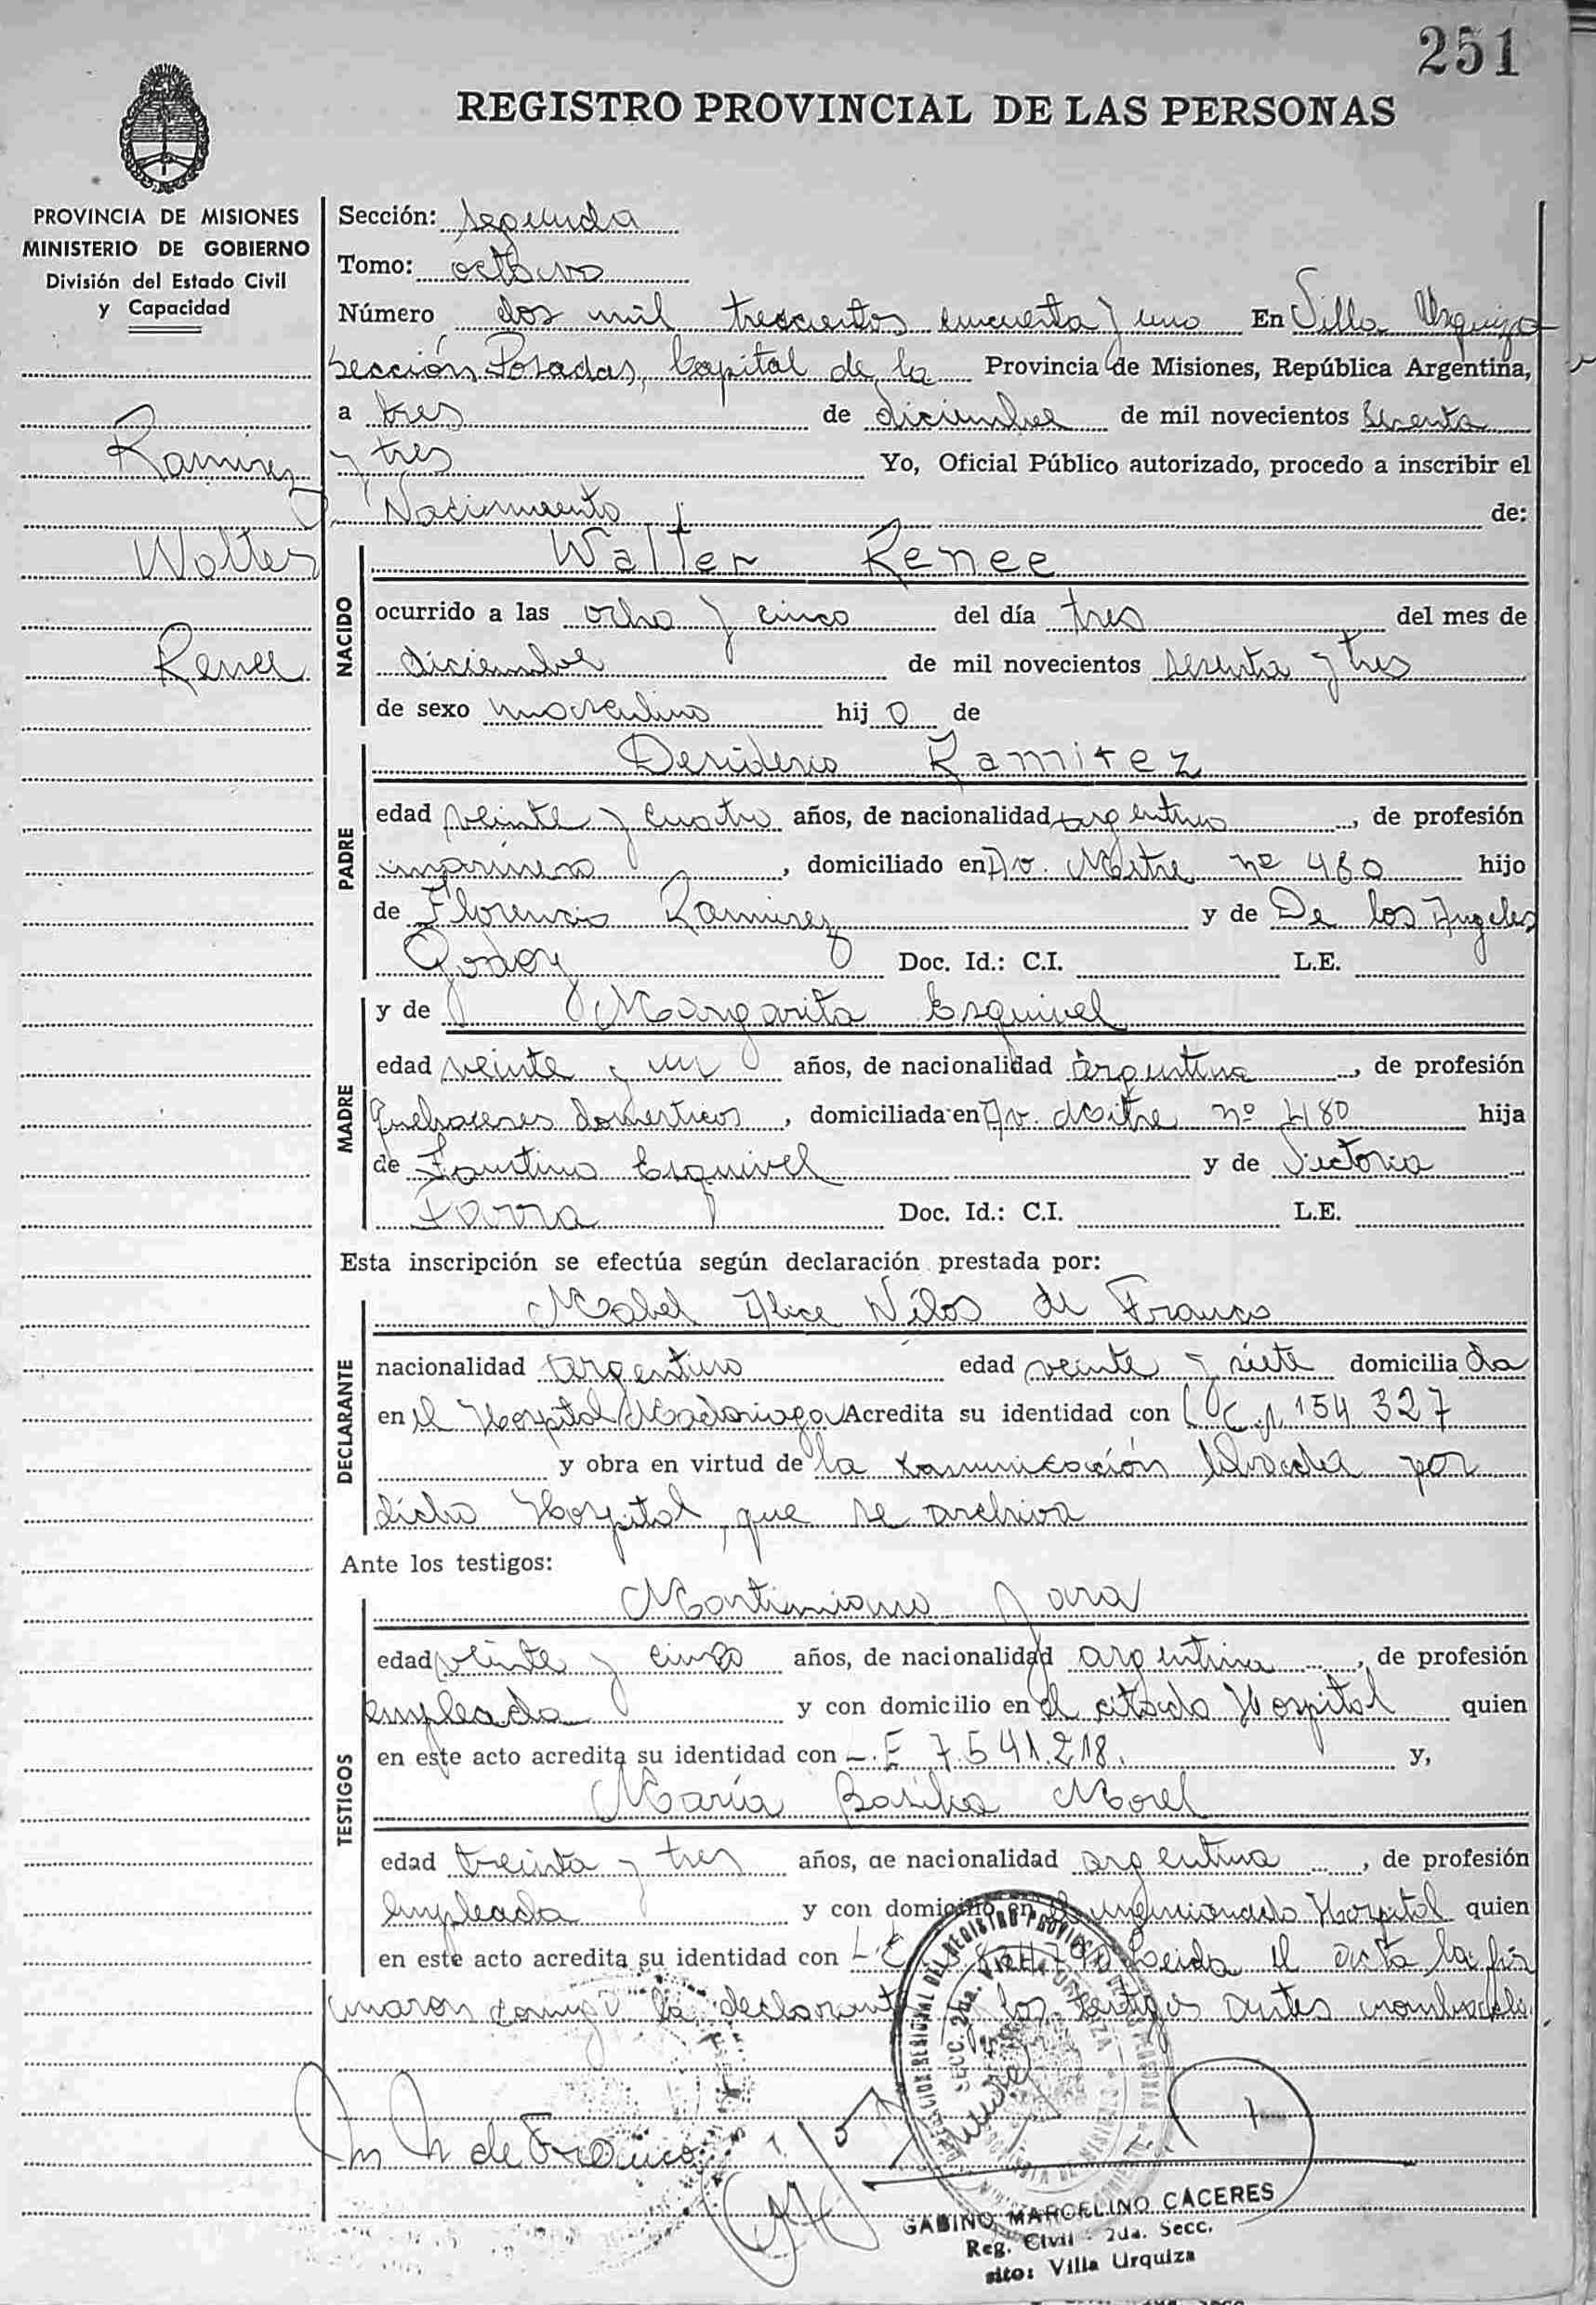 251
REGISTRO PROVINCIAL DE LAS PERSONAS
PROVINCIA DE MISIONES
MINISTERIO DE GOBIERNO
División del Estado Civil
y Capacidad
Ramirez
Walter
Renee
Sección: segunda
Tomo: octavo
Número dos mil trescientos cincuenta y uno En Villa Urquiza
sección Posadas, Capital de la Provincia de Misiones, República Argentina,
a tres de diciembre de mil novecientos
y tres Yo, Oficial Público autorizado, procedo a inscribir el
Nacimiento de:
NACIDO
Walter Renee
ocurrido a las ocho y cinco del día tres del mes de
diciembre de mil novecientos y tres
de sexo masculino hij o de
PADRE
Desiderio Ramirez
edad veinte y cuatro años, de nacionalidad argentino, de profesión
marinero, domiciliado en Av. Mitre nº 480 hijo
de Florencio Ramirez y de De los Angeles
Godoy Doc. Id.: C.I. L.E.
MADRE
y de Margarita Esquivel
edad veinte y un años, de nacionalidad argentina, de profesión
quehaceres domesticos, domiciliada en Av. Mitre nº 480 hija
de Faustino Esquivel y de Victoria
Doc. Id.: C.I. L.E.
Esta inscripción se efectúa según declaración prestada por:
DECLARANTE
Mabel Alice de Franco
nacionalidad argentina edad veinte y siete domicilia da
en el Hospital Madariaga Acredita su identidad con 154 327
y obra en virtud de la comunicación librada por
dicho Hospital, que se archiva
Ante los testigos:
TESTIGOS
Martiniano Jara
edad veinte y cinco años, de nacionalidad argentina, de profesión
empleada y con domicilio en el citado Hospital quien
en este acto acredita su identidad con L.E 7.541.218. y,
María Basilia Morel
edad treinta y tres años, de nacionalidad argentina, de profesión
empleada y con domicilio en el mencionado Hospital quien
en este acto acredita su identidad con L.C Leida el acta la fir
maron conmigo la declarante y los testigos antes nombrados.
de Franco
GABINO MARCELINO CACERES
Reg. Civil - 2da. Secc.
sito: Villa Urquiza